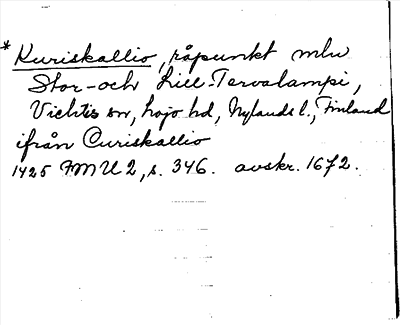 *Kuriskallio, råpunkt mlu
Stor- och Lill-Tervalampi,
Vichtis sn, Lojo hd, Nylands l., Finland
ifrån Curiskallio
1425 FMU 2, s. 346. avskr. 1672.